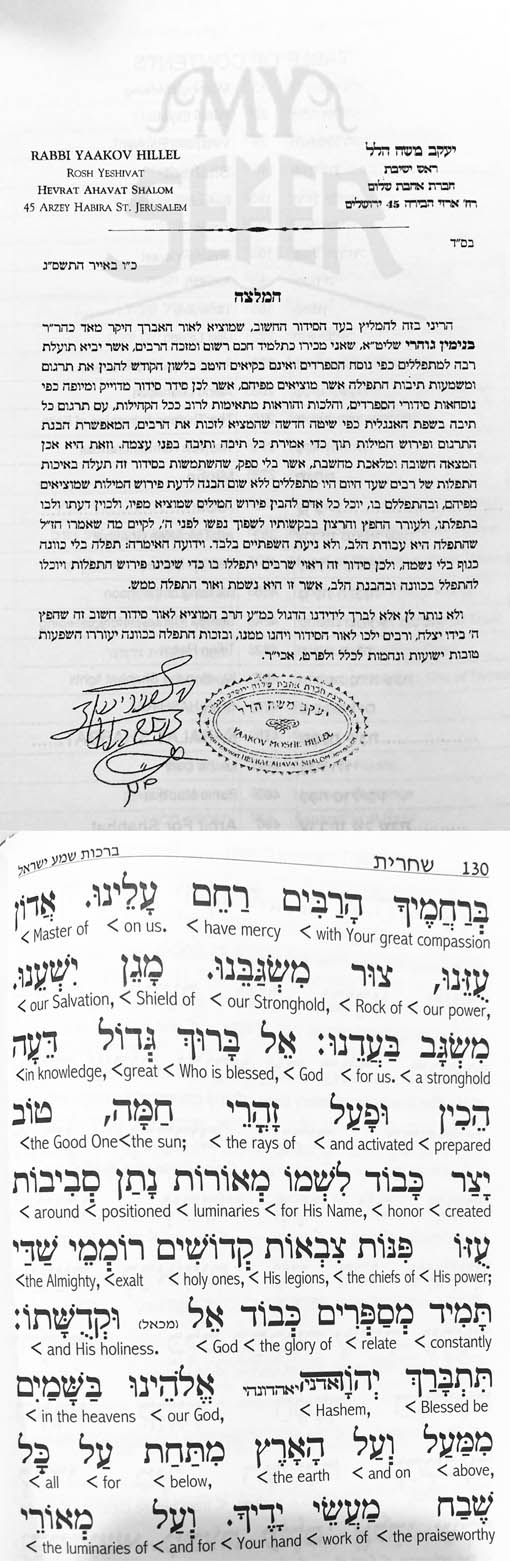 MY
SEFER
RABBI YAAKOV HILLEL
ROSH YESHIVAT
HEVRAT AHAVAT SHALOM
45 ARZEY HABIRA ST. JERUSALEM
יעקב משה הלל
ראש ישיבת
חברת אהבת שלום
רח' ארזי הבירה 45 ירושלים
בס"ד
כ"ו באייר התשס"ג
המלצה
הריני בזה להמליץ בעד הסידור החשוב, שמוציא לאור האברך היקר מאד כהר"ר
בנימין גוהרי שליט"א, שאני מכירו כתלמיד חכם רשום ומזכה הרבים, אשר יביא תועלת
רבה למתפללים כפי נוסח הספרדים ואינם בקיאים היטב בלשון הקודש להבין את תרגום
ומשמעות תיבות התפילה אשר מוציאים מפיהם, אשר לכן סידר סידור מדוייק ומיופה כפי
נוסחאות סידורי הספרדים, והלכות והוראות מתאימות לרוב ככל הקהילות, עם תרגום כל
תיבה בשפת האנגלית כפי שיטה חדשה שהמציא לזכות את הרבים, המאפשרת הבנת
התרגום ופירוש המילות תוך כדי אמירת כל תיבה ותיבה בפני עצמה. וזאת היא אכן
המצאה חשובה ומלאכת מחשבת, אשר בלי ספק, שהשתמשות בסידור זה תעלה באיכות
התפלות של רבים שעד היום היו מתפללים ללא שום הבנה לדעת פירוש המילות שמוציאים
מפיהם, ובהתפללם בו, יוכל כל אדם להבין פירוש המילים שמוציא מפיו, ולכוין דעתו ולבו
בתפלתו, ולעורר החפץ והרצון בבקשותיו לשפוך נפשו לפני ה', לקיים מה שאמרו חז"ל
שהתפלה היא עבודת הלב, ולא ניעת השפתיים בלבד. וידועה האימרה: תפלה בלי כוונה
כגוף בלי נשמה, ולכן סידור זה ראוי שרבים יתפללו בו כדי שיבינו פירוש התפלות ויוכלו
להתפלל בכוונה ובהבנת הלב, אשר זו היא נשמת ואור התפלה ממש.
ולא נותר לן אלא לברך לידידנו הדגול כמ"ע הרב המוציא לאור סידור חשוב זה שחפץ
ה' בידו יצלח, ורבים ילכו לאור הסידור ויהנו ממנו, ובזכות התפלה בכוונה יעוררו השפעות
טובות ישועות ונחמות לכלל ולפרט, אכי"ר.
יעקב משה הלל
YAAKOV MOSHE HILLEL
HEVRAT AHAVAT SHALOM
130 שחרית ברכות שמע ישראל
בְּרַחֲמֶיךָ הָרַבִּים רַחֵם עָלֵינוּ. אֲדוֹן
< Master of < on us. < have mercy < with Your great compassion
עֻזֵּנוּ, צוּר מִשְׂגַּבֵּנוּ. מָגֵן יִשְׁעֵנוּ.
< our Salvation, < Shield of < our Stronghold, < Rock of < our power,
מִשְׂגָּב בַּעֲדֵנוּ: אֵל בָּרוּךְ גְּדוֹל דֵּעָה
<in knowledge, <great < Who is blessed, < God < for us. < a stronghold
הֵכִין וּפָעַל זָהֳרֵי חַמָּה, טוֹב
<the Good One<the sun; < the rays of < and activated < prepared
יָצַר כָּבוֹד לִשְׁמוֹ מְאוֹרוֹת נָתַן סְבִיבוֹת
< around < positioned < luminaries < for His Name, < honor < created
עֻזּוֹ פִּנּוֹת צִבְאוֹת קְדוֹשִׁים רוֹמְמֵי שַׁדַּי
<the Almighty, <exalt < holy ones, < His legions, < the chiefs of < His power;
תָּמִיד מְסַפְּרִים כְּבוֹד אֵל (מכאל) וּקְדֻשָּׁתוֹ:
< and His holiness. < God < the glory of < relate < constantly
תִּתְבָּרַךְ יְהֹוָה אדני יאהדונהי אֱלֹהֵינוּ בַּשָּׁמַיִם
< in the heavens < our God, < Hashem, < Blessed be
מִמַּעַל וְעַל הָאָרֶץ מִתַּחַת עַל כָּל
< all < for < below, < the earth < and on < above,
שֶׁבַח מַעֲשֵׂי יָדֶיךָ. וְעַל מְאוֹרֵי
< the luminaries of < and for < Your hand < work of < the praiseworthy